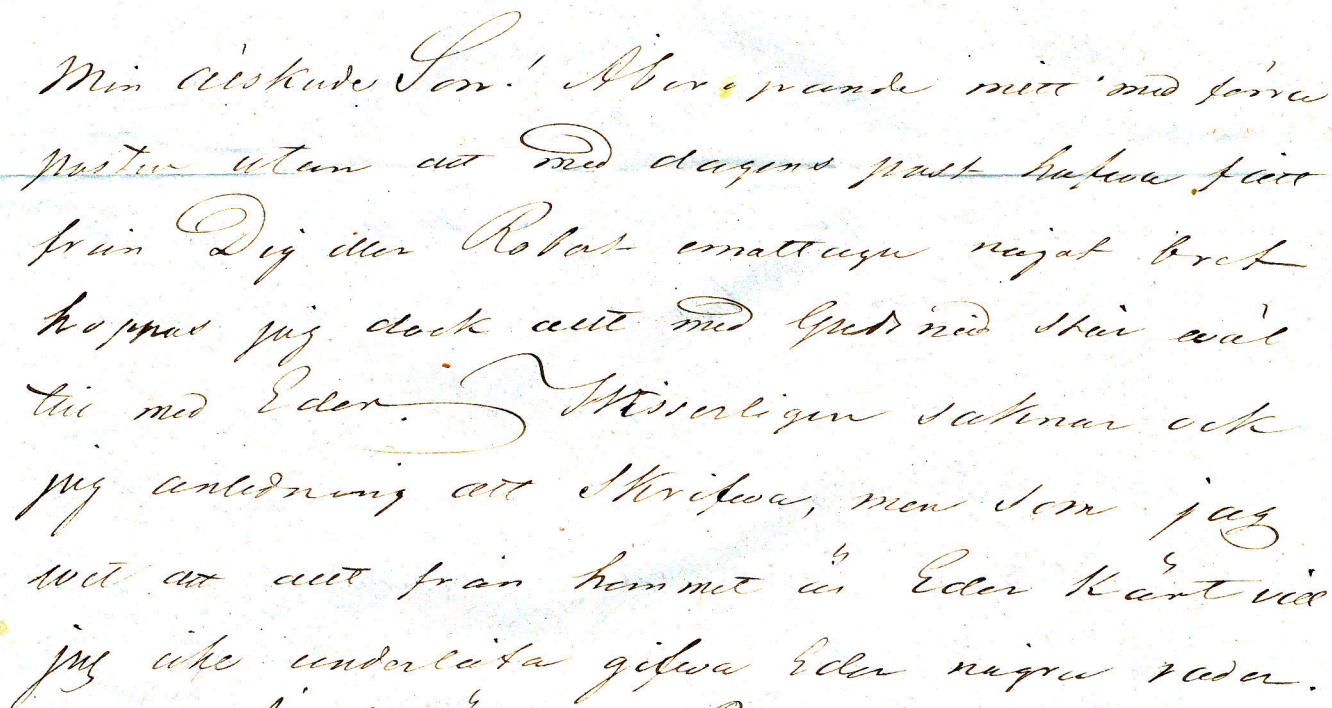 Min älskade Son! Åberopande mitt med förra
posten utan att med dagens post hafwa fått
från Dig eller Robert emottaga något bref
hoppas jag dock allt med Guds nåd står wäl
till med Eder. Wisserligen saknar ock
jag anledning att skrifwa, men som jag
wet att allt från hemmet är Eder kärt vill
jag icke underlåta gifwa Eder några rader.